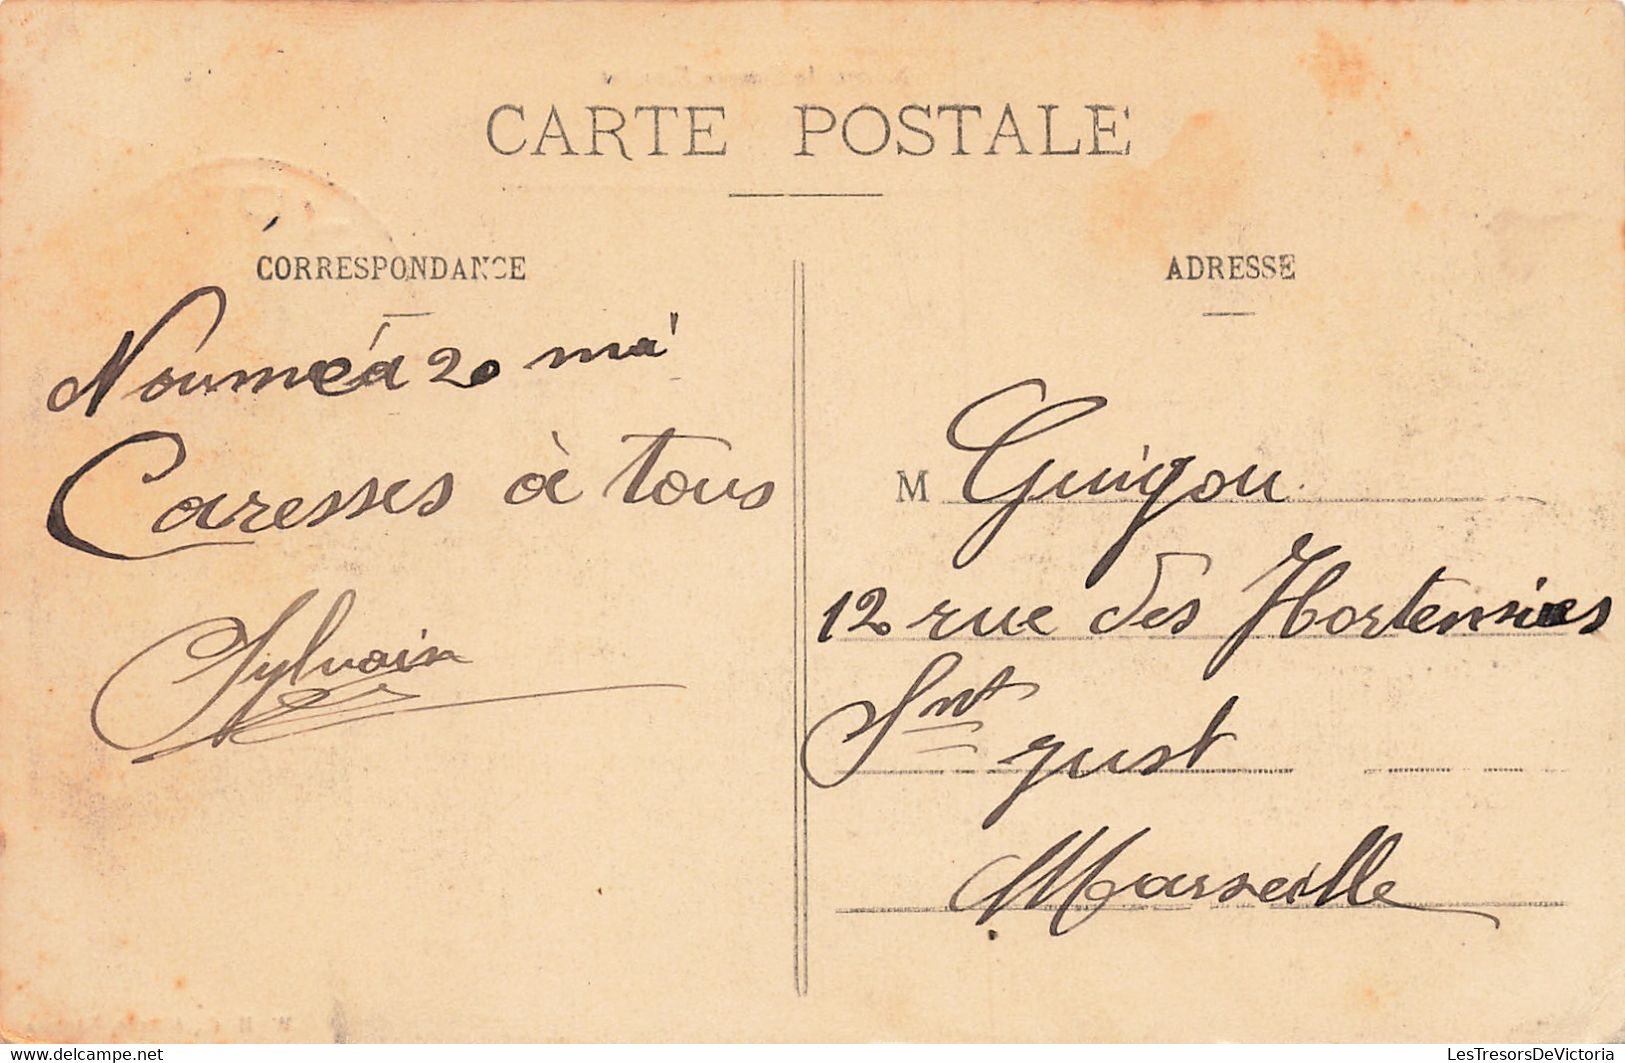 CARTE POSTALE
CORRESPONDANCE
Nouméa 20 mai
Caresses à tous
Sylvain
ADRESSE
M Guigou
12 rue des Hortensias
Snt
just
Marseille
delcampe.net
LesTresorsDeVictoria